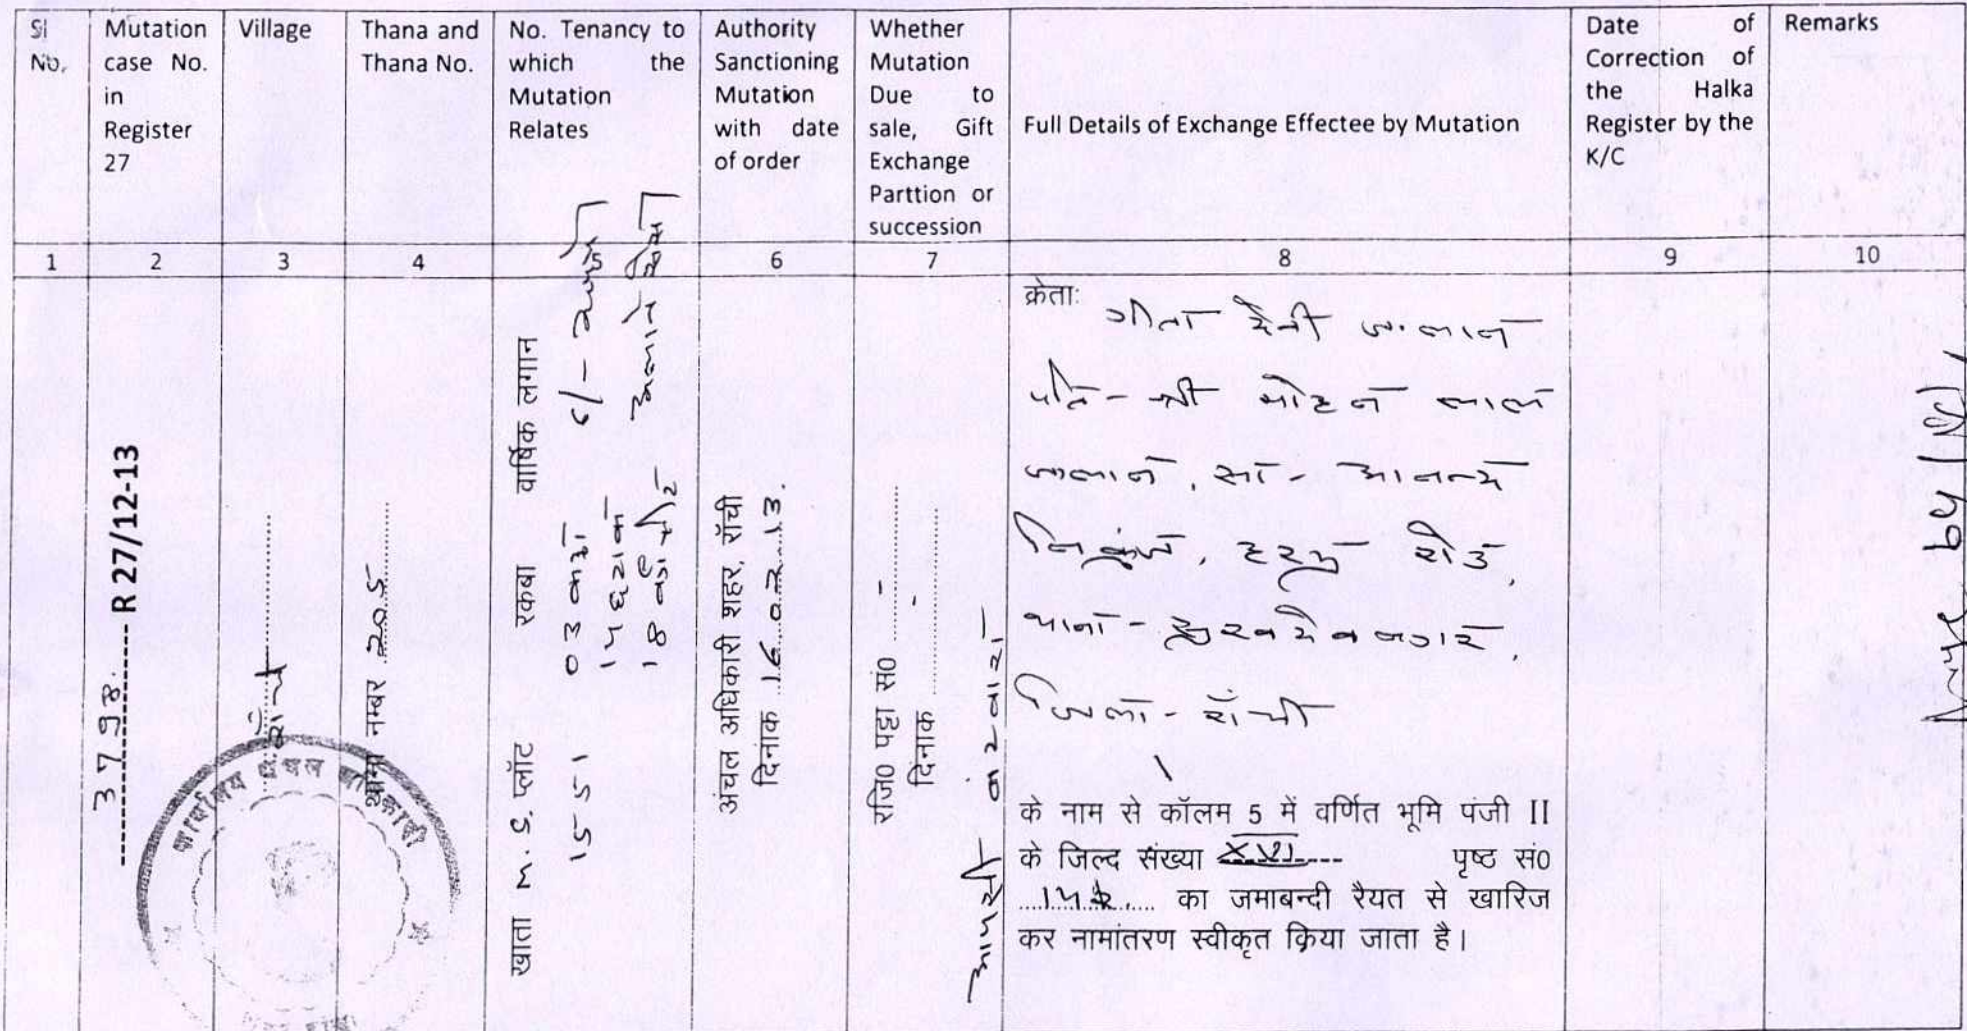 Sl No.
Mutation case No. in Register 27
Village
Thana and Thana No.
No. Tenancy to which the Mutation Relates
Authority Sanctioning Mutation with date of order
Whether Mutation Due to sale, Gift Exchange Parttion or succession
Full Details of Exchange Effectee by Mutation
Date of Correction of the Halka Register by the K/C
Remarks
1 2 3 4 5 6 7 8 9 10
3798 R 27/12-13
राँची
थाना नम्बर 205
खाता M. S. प्लॉट रकबा वार्षिक लगान
1551
03 कट्ठा
15 छटाक
18 वर्गफीट
अंचल अधिकारी शहर, राँची
दिनाक 16.02.13.
रजि0 पट्टा सं0 -
दिनाक -
आपसी बटवारा
क्रेताः
गीता देवी जालान
पति - श्री मोहन लाल
जालान, सा - आनन्द
रोड,
थाना - सुखदेव नगर,
जिला - राँची
के नाम से कॉलम 5 में वर्णित भूमि पंजी II
के जिल्द संख्या XVI पृष्ठ सं0
का जमाबन्दी रैयत से खारिज
कर नामांतरण स्वीकृत किया जाता है।
कार्यालय अंचल अधिकारी